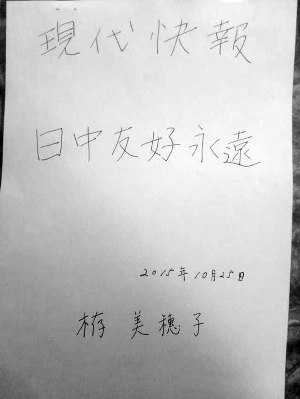 現代快報
日中友好永遠
2015年10月25日
栫 美穂子